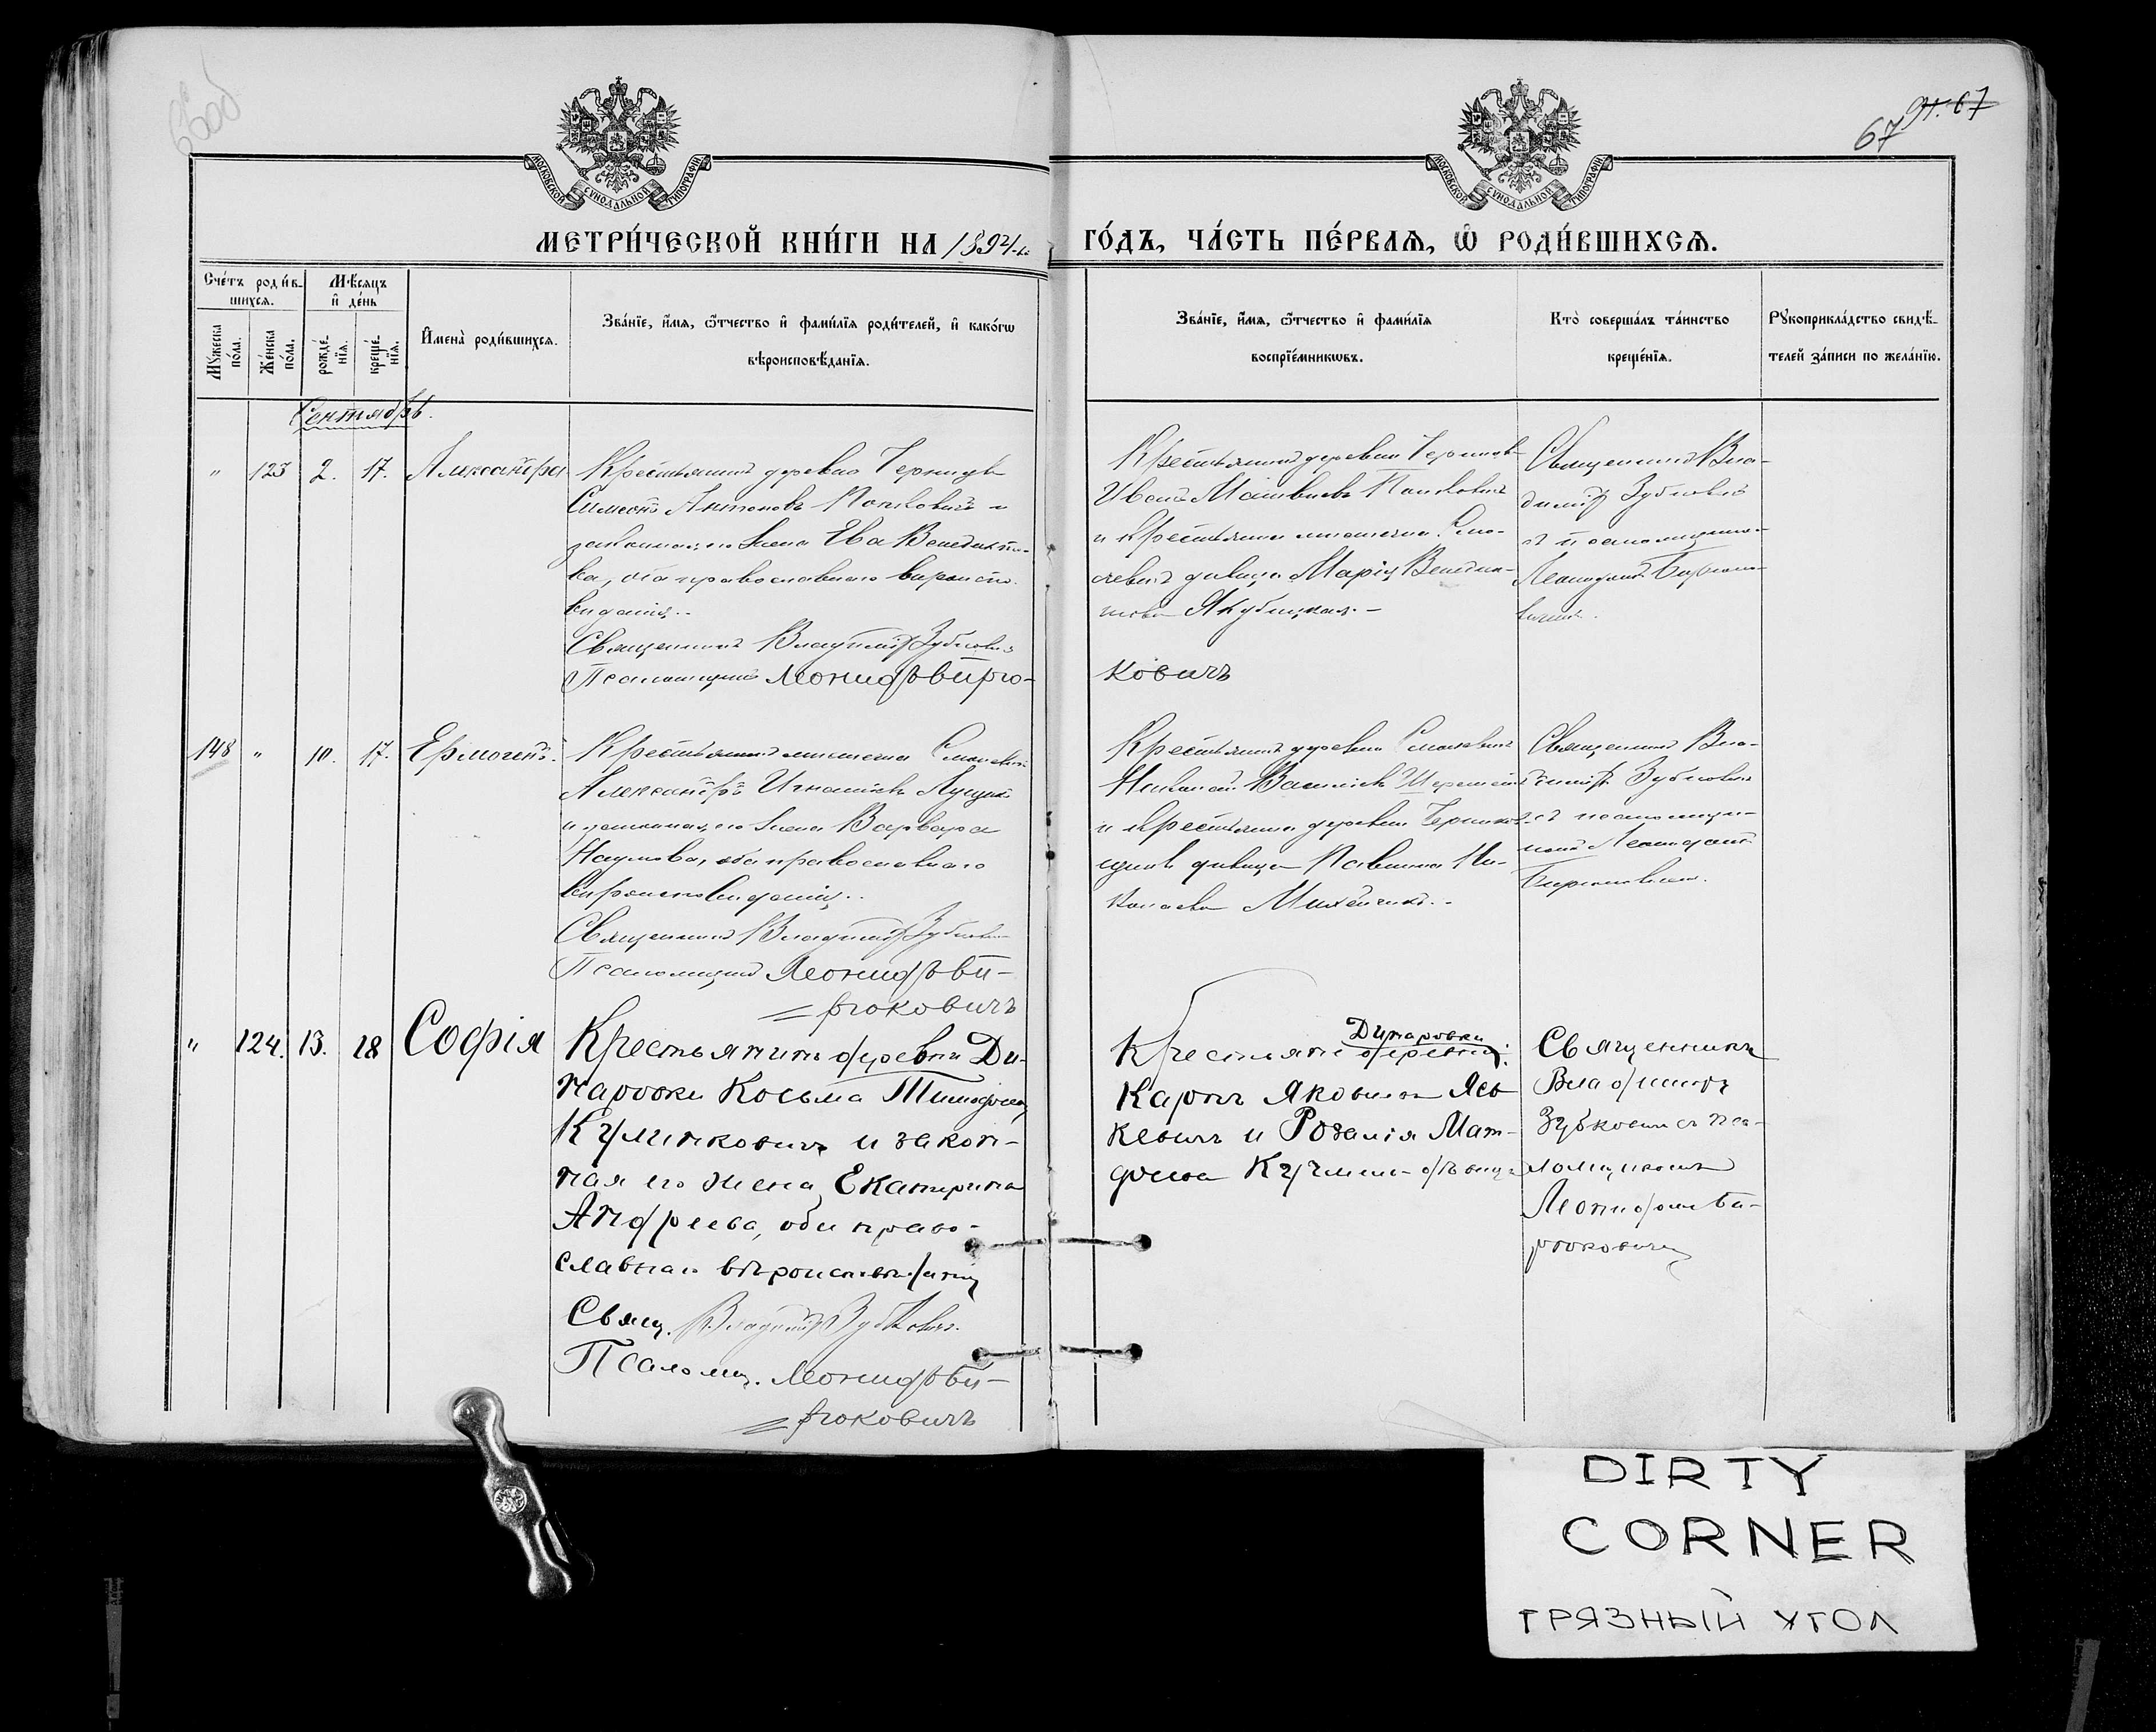 67 91. 67
МОСКОВСКОЙ СѴНОДАЛЬНОЙ ТИПОГРАФІИ
МОСКОВСКОЙ СѴНОДАЛЬНОЙ ТИПОГРАФІИ
МЕТРИ́ЧЕСКОЙ КНИ́ГИ НА 1894 г.
ГО́ДЪ, ЧА́СТЬ ПЕ́РВАѦ, Ѡ҆ РОДИ́ВШИХСѦ.
Сче́тъ роди́в-
шихсѧ.
Мѣ́сѧцъ
и҆ де́нь
Мꙋ́жеска
по́ла.
Же́нска
по́ла.
рожде́-
нїѧ.
креще́-
нїѧ.
И҆мена̀ роди́вшихсѧ.
Зва́нїе, и҆́мѧ, ѻ҆́тчество и҆ фами́лїѧ роди́телей, и҆ како́гѡ
вѣроисповѣ́данїѧ.
Зва́нїе, и҆́мѧ, ѻ҆́тчество и҆ фами́лїѧ
воспрїе́мникѡвъ.
Кто̀ соверша́лъ та́инство
креще́нїѧ.
Рꙋкоприкла́дство свидѣ́-
телей за́писи по жела́нїю.
Сентябрь.
" 123 2. 17. Александра
Крестьянинъ деревни
Симеонъ Антоновъ и
законная его жена Ева Венедикто-
ва, оба православнаго вѣроиспо-
вѣданія.
Священникъ Владимір Зубковичъ
Псаломщикъ Леонидъ Бирю-
Крестьянинъ деревни
Иванъ Матвѣевъ
и крестьянка мѣстечка Смо-
левичъ дѣвица Марія Венедик-
това Якубицкая. -
ковичъ
Священникъ Вла-
диміръ Зубковичъ
съ псаломщико-
Леонидомъ Бирюко-
вичемъ.
148 " 10. 17. Ермогенъ.
Крестьянинъ мѣстечка Смолевичъ
Александръ Игнатіевъ
и законная его жена Варвара
Наумова, оба православнаго
вѣроисповѣданія.
Священникъ Владимір Зубкович
Псаломщикъ Леонидъ Би-
рюковичъ
Крестьянинъ деревни
Николай Васильевъ
и крестьянка деревни
дѣвица Ни-
колаева
Священникъ Вла-
диміръ Зубковичъ
съ псаломщи-
комъ Леонидомъ
Бирюковичем.
" 124. 13. 18 Софія
Крестьянинъ деревни Ди-
наровки Косьма Тимофеевъ
и закон-
ная его жена Екатерина
Андреева, оба право-
славнаго вѣроисповѣданія
Свящ. Владимір Зубкович.
Псаломщ. Леонидъ Би-
рюковичъ
Динаровки
Крестьяне деревни:
Карпъ Яковлевъ Ясь
кевичъ и Розалія Мат-
фіева дѣвица
Священникъ
Владиміръ
Зубковичъ съ пса-
ломщикомъ
Леонидомъ Би-
рюковичемъ
DIRTY
CORNER
ГРЯЗНЫЙ УГОЛ